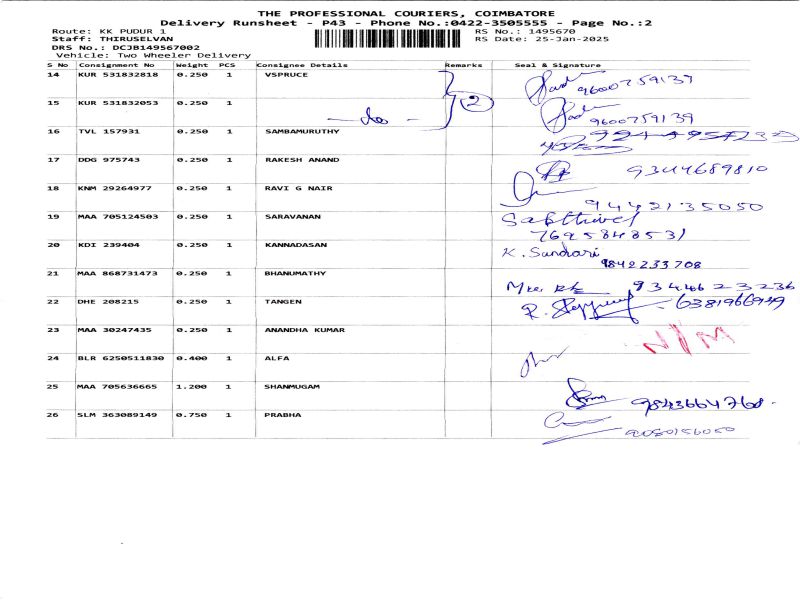 THE PROFESSIONAL COURIERS, COIMBATORE
Delivery Runsheet - P43 - Phone No.:0422-3505555 - Page No.:2
Route: KK PUDUR 1 RS No.: 1495670
Staff: THIRUSELVAN RS Date: 25-Jan-2025
DRS No.: DCJB149567002
Vehicle: Two Wheeler Delivery
S No Consignment No Weight PCS Consignee Details Remarks Seal & Signature
14 KUR 531832818 0.250 1 VSPRUCE 9600759139
15 KUR 531832053 0.250 1 -do- 2 9600759139
16 TVL 157931 0.250 1 SAMBAMURUTHY
17 DDG 975743 0.250 1 RAKESH ANAND 9344689810
18 KNM 29264977 0.250 1 RAVI G NAIR 9442135050
19 MAA 705124503 0.250 1 SARAVANAN Sakthivel
7695848531
20 KDI 239404 0.250 1 KANNADASAN K. Sundari
9842233708
21 MAA 868731473 0.250 1 BHANUMATHY 9344623236
22 DHE 208215 0.250 1 TANGEN 6381966949
23 MAA 30247435 0.250 1 ANANDHA KUMAR N/M
24 BLR 6250511830 0.400 1 ALFA
25 MAA 705636665 1.200 1 SHANMUGAM 9843664768
26 SLM 363089149 0.750 1 PRABHA